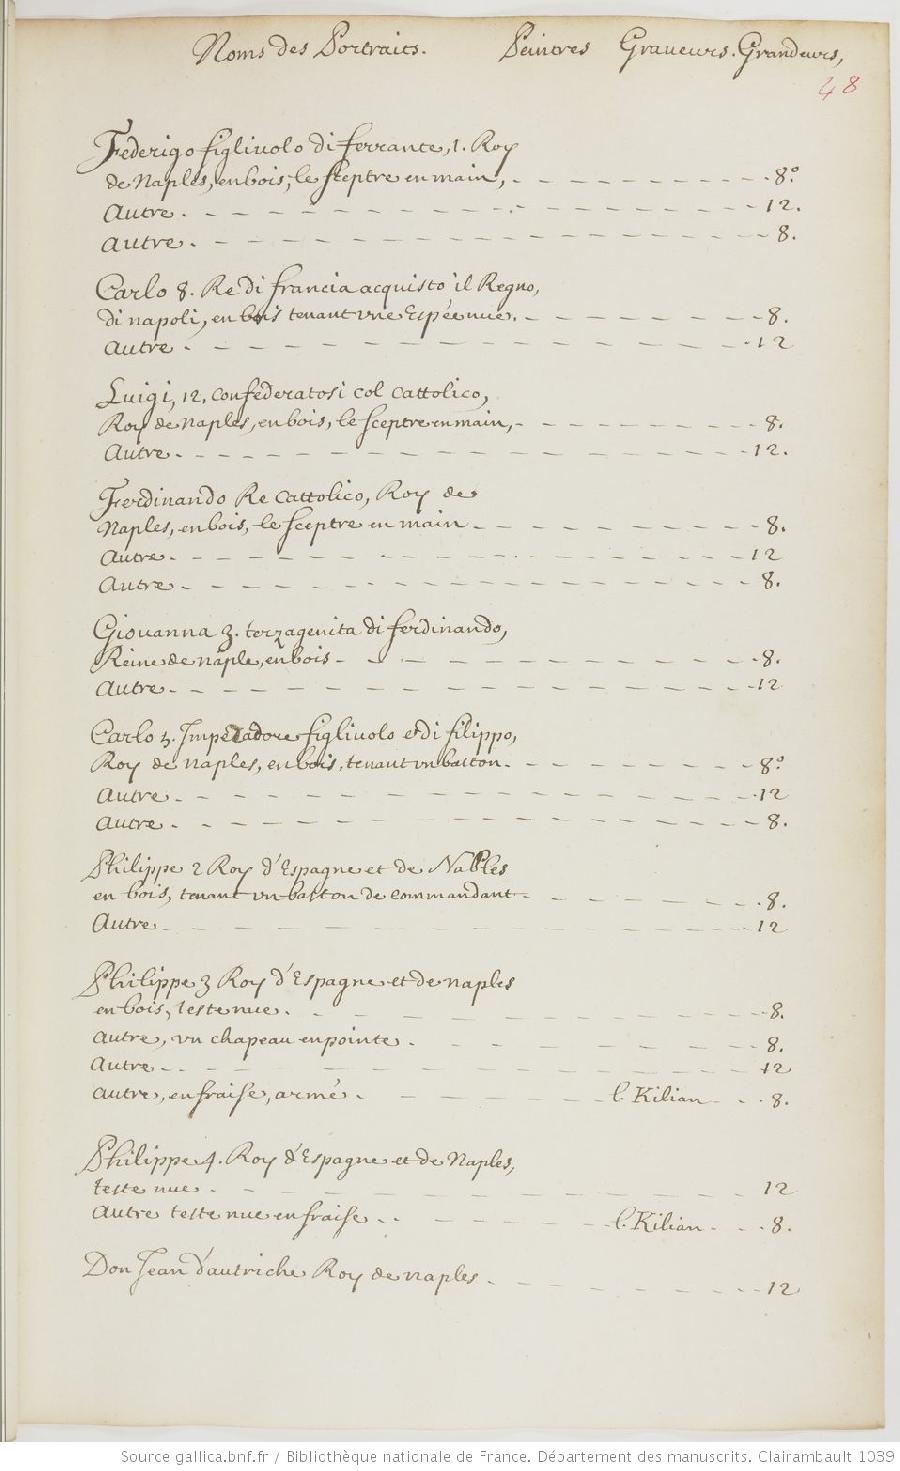 Noms des Portraits. Peintres Graueurs. Grandeurs,
48
Federigo figliuolo di ferrante, 1. Roy
de Naples, en bois, le sceptre en main, 8.º
Autre. 12.
Autre. 8.
Carlo 8. Re di francia acquisto il Regno,
di napoli, en bois tenant vne Espée nue. 8.
Autre 12
Luigi, 12, confederatosi col cattolico,
Roy de Naples, en bois, le sceptre en main, 8.
Autre. 12.
Ferdinando Re Cattolico, Roy de
Naples, en bois, le sceptre en main 8.
Autre. 12
Autre 8.
Giouanna 3. terzagenita di ferdinando,
Reine de naple, en bois 8.
Autre. 12
Carlo 5. Imperadore figliuolo di filippo,
Roy de naples, en bois, tenant vn baston. 8º
Autre 12
Autre. 8.
Philippe 2 Roy d'Espagne et de Naples
en bois, tenant vn baston de commandant 8.
Autre 12
Philippe 3 Roy d'Espagne et de naples
en bois, teste nue. 8.
Autre, vn chapeau en pointe. 8.
Autre 12
Autre, en fraise, armé. l. Kilian 8.
Philippe 4. Roy d'Espagne et de Naples,
teste nue. 12
Autre teste nue en fraise l. Kilian 8.
Don Jean d'autriche Roy de naples 12
Source gallica.bnf.fr / Bibliothèque nationale de France. Département des manuscrits. Clairambault 1039